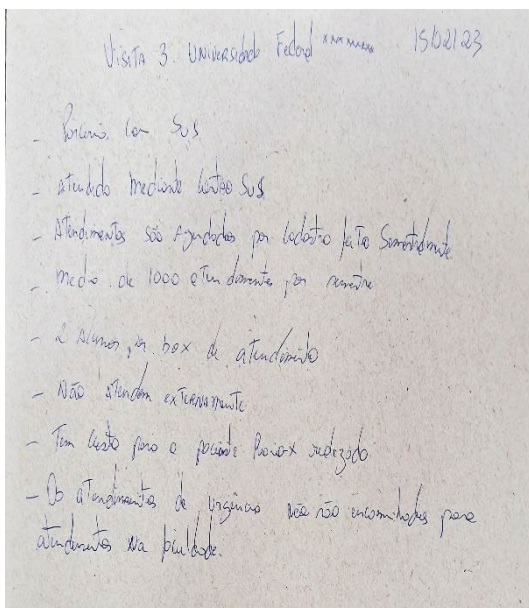 VISITA 3. UNIVERSIDADE Federal xxxxxxxx 15/02/23
- Parceria com SUS
- Atendido mediante cartão SUS
- Atendimentos são Agendados por cadastro feito Semestralmente
- média de 1000 atendimentos por semestre
- 2 Alunos por box de atendimento
- Não atendem externamente
- Tem custo para o paciente Raio-x realizado
- Os atendimentos de urgência não são encaminhados para
atendimentos na faculdade.